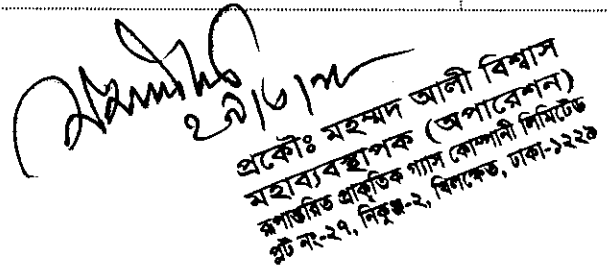 প্রকৌঃ মহম্মদ আলী বিশ্বাস
মহাব্যবস্থাপক (অপারেশন)
রূপান্তরিত প্রাকৃতিক গ্যাস কোম্পানী লিমিটেড
প্লট নং-২৭, নিকুঞ্জ-২, খিলক্ষেত, ঢাকা-১২২৯